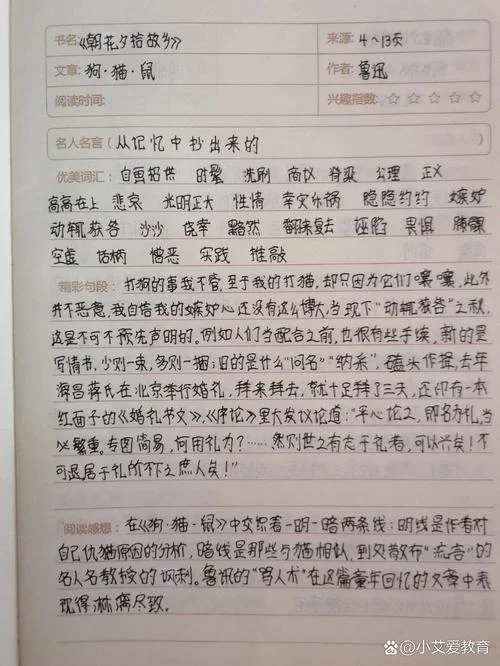 书名《朝花夕拾故乡》 来源：4～13页
文章：狗·猫·鼠 作者：鲁迅
阅读时间： 兴趣指数：☆ ☆ ☆ ☆ ☆
名人名言（从记忆中抄出来的
优美词汇：自画招供 时髦 洗刷 商议 脊梁 公理 正义
高高在上 悲哀 光明正大 性情 幸灾乐祸 隐隐约约 嫉妒
动辄获咎 沙沙 饶幸 黯然 翻来复去 诬陷 畏惧 腼腆
空虚 话柄 憎恶 实践 推敲
精彩句段：打狗的事我不管，至于我的打猫，却只因为它们嚷嚷，此外
并不恶意，我自信我的嫉妒心还没有这么博大，当现下“动辄获咎”之秋，
这是不可不预先声明的。例如人们当配合之前，也很有些手续，新的是
写情书，少则一束，多则一捆；旧的是什么“问名”“纳采”，磕头作揖，去年
海昌蒋氏在北京举行婚礼，拜来拜去，就十足拜了三天，还印有一本
红面子的《婚礼节文》，《序论》里大发议论道：“平心论之，既名为礼，当
必繁重。专图简易，何用礼为？……然则世之有志于礼者，可以兴矣！不
可退居于礼所不下之庶人矣！”
阅读感想：在《狗·猫·鼠》中交织着一明一暗两条线：明线是作者对
自己仇猫原因的分析，暗线是那些与猫相似，到处散布“流言”的
名人名教授的讽刺。鲁迅的“骂人术”在这篇童年回忆的文章中表
现得淋漓尽致。
@小艾爱教育